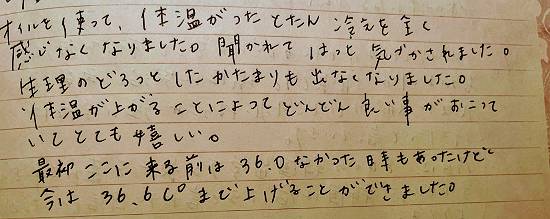 オイルを使って、体温があがったとたん 冷えを全く
感じなくなりました。聞かれて はっと 気づかされました。
生理のどろっと したかたまりも 出なくなりました。
体温が上がる ことによって どんどん 良い事がおこって
いて とても 嬉しい。
最初 ここに 来る前は 36.0 なかった 日時もあったけど
今は 36.6C° まで上げることが できました。